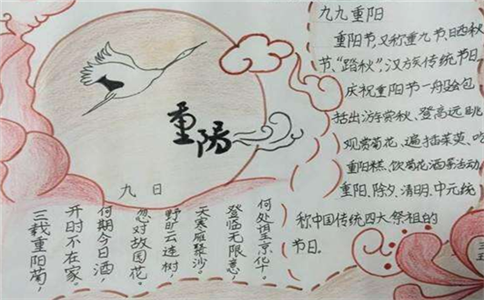 九九重阳
重阳节,又称重九节、晒秋
节、"踏秋",汉族传统节日
庆祝重阳节一般会包
括出游赏秋、登高远眺、
观赏菊花、遍插茱萸、吃
重阳糕、饮菊花酒等活动。
重阳、除夕、清明、中元统
称中国传统四大祭祖的
节日。
重陽
九日
三载重阳菊,
开时不在家。
何期今日酒,
忽对故园花。
野旷云连树,
天寒雁聚沙。
登临无限意,
何处望京华。